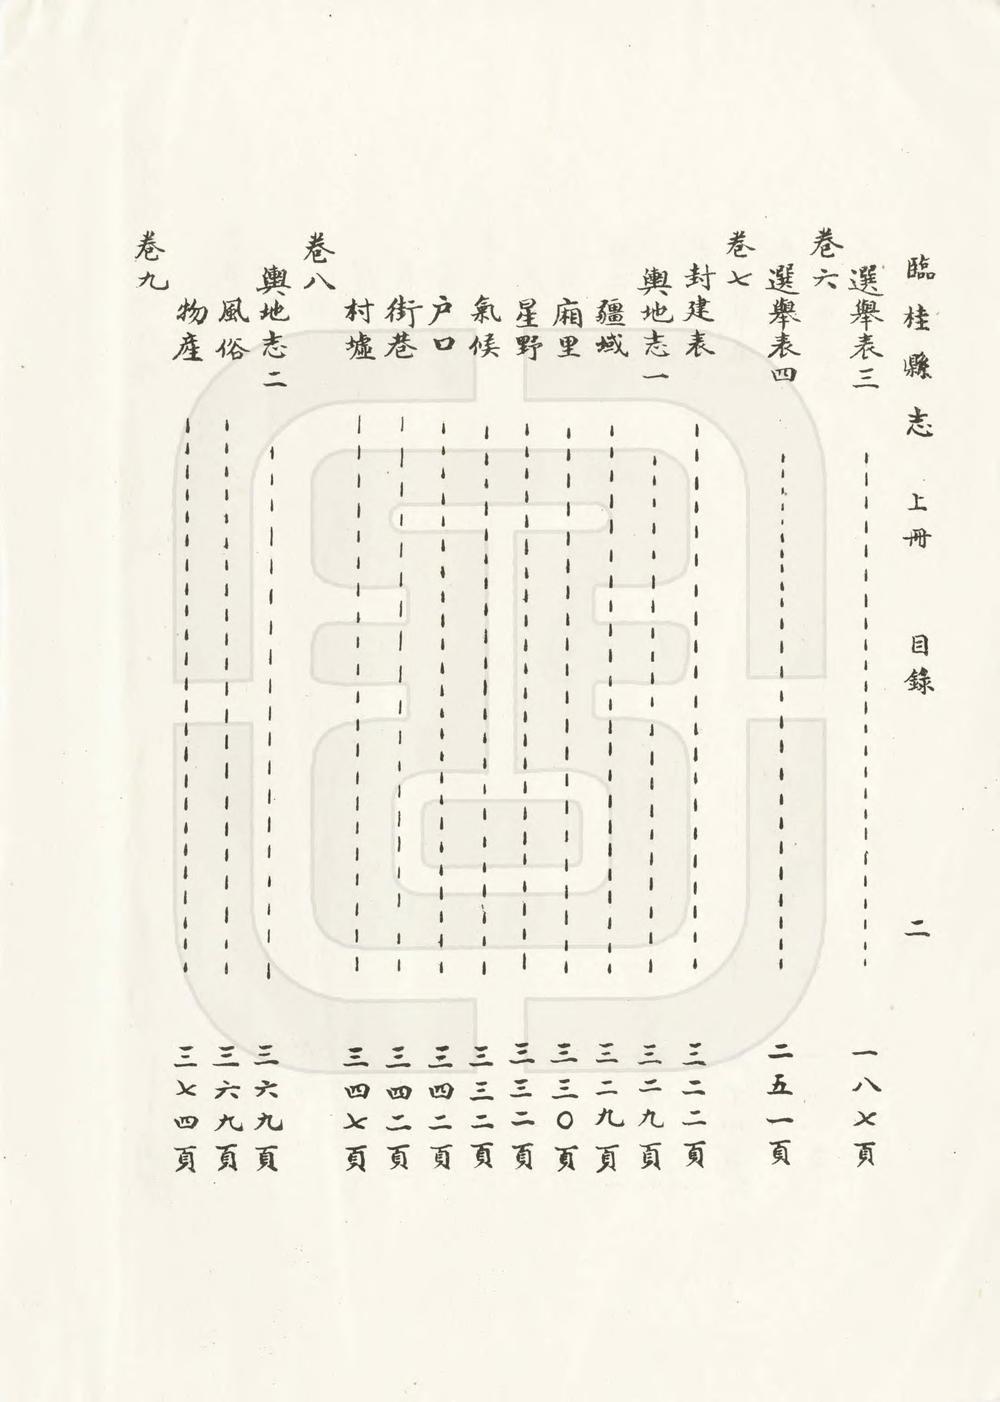 臨桂縣志 上冊 目錄 二
選舉表三 一八七頁
卷六
選舉表四 二五一頁
卷七
封建表 三二二頁
輿地志一 三二九頁
疆域 三二九頁
廂里 三三〇頁
星野 三三二頁
氣候 三三二頁
户口 三四二頁
街巷 三四二頁
村墟 三四七頁
卷八
輿地志二 三六九頁
風俗 三六九頁
物產 三七四頁
卷九